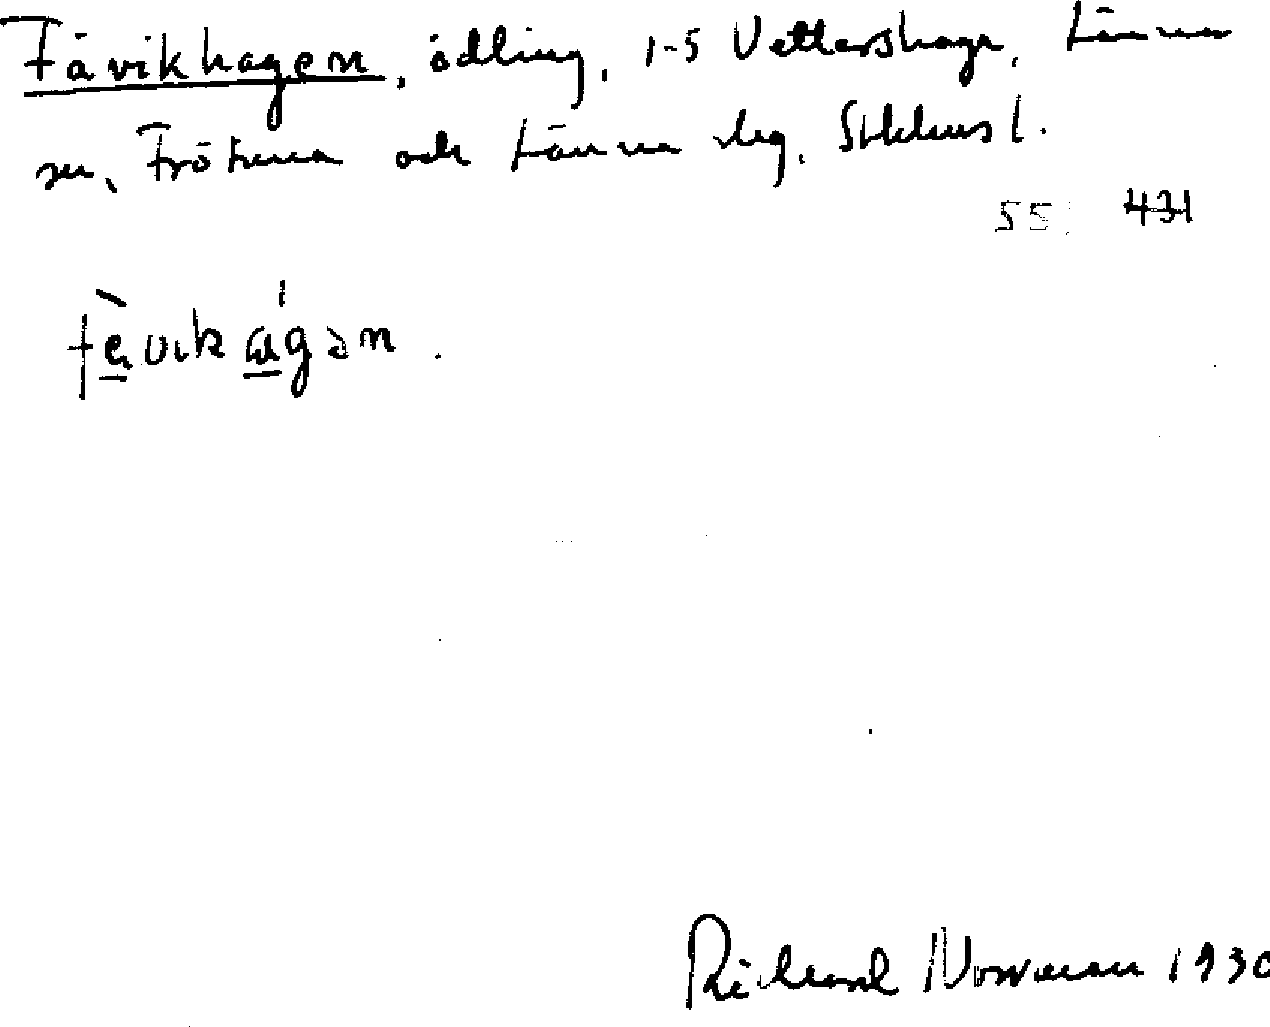 Fåvikhagen, ödling, 1-5 Vettershaga, Länna
sn, Frötuna och Länna slg, Sthlms l.
55: 431
fe̱vika̱gən.
Rickard Norrman 1930